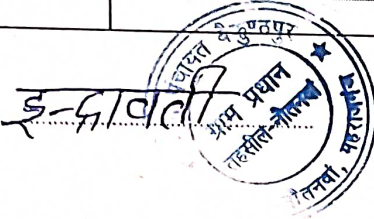 इन्द्रावती
पंचायत वैकुण्ठपुर
ग्राम प्रधान
तहसील-नौतनवां
नौतनवां, महराजगंज